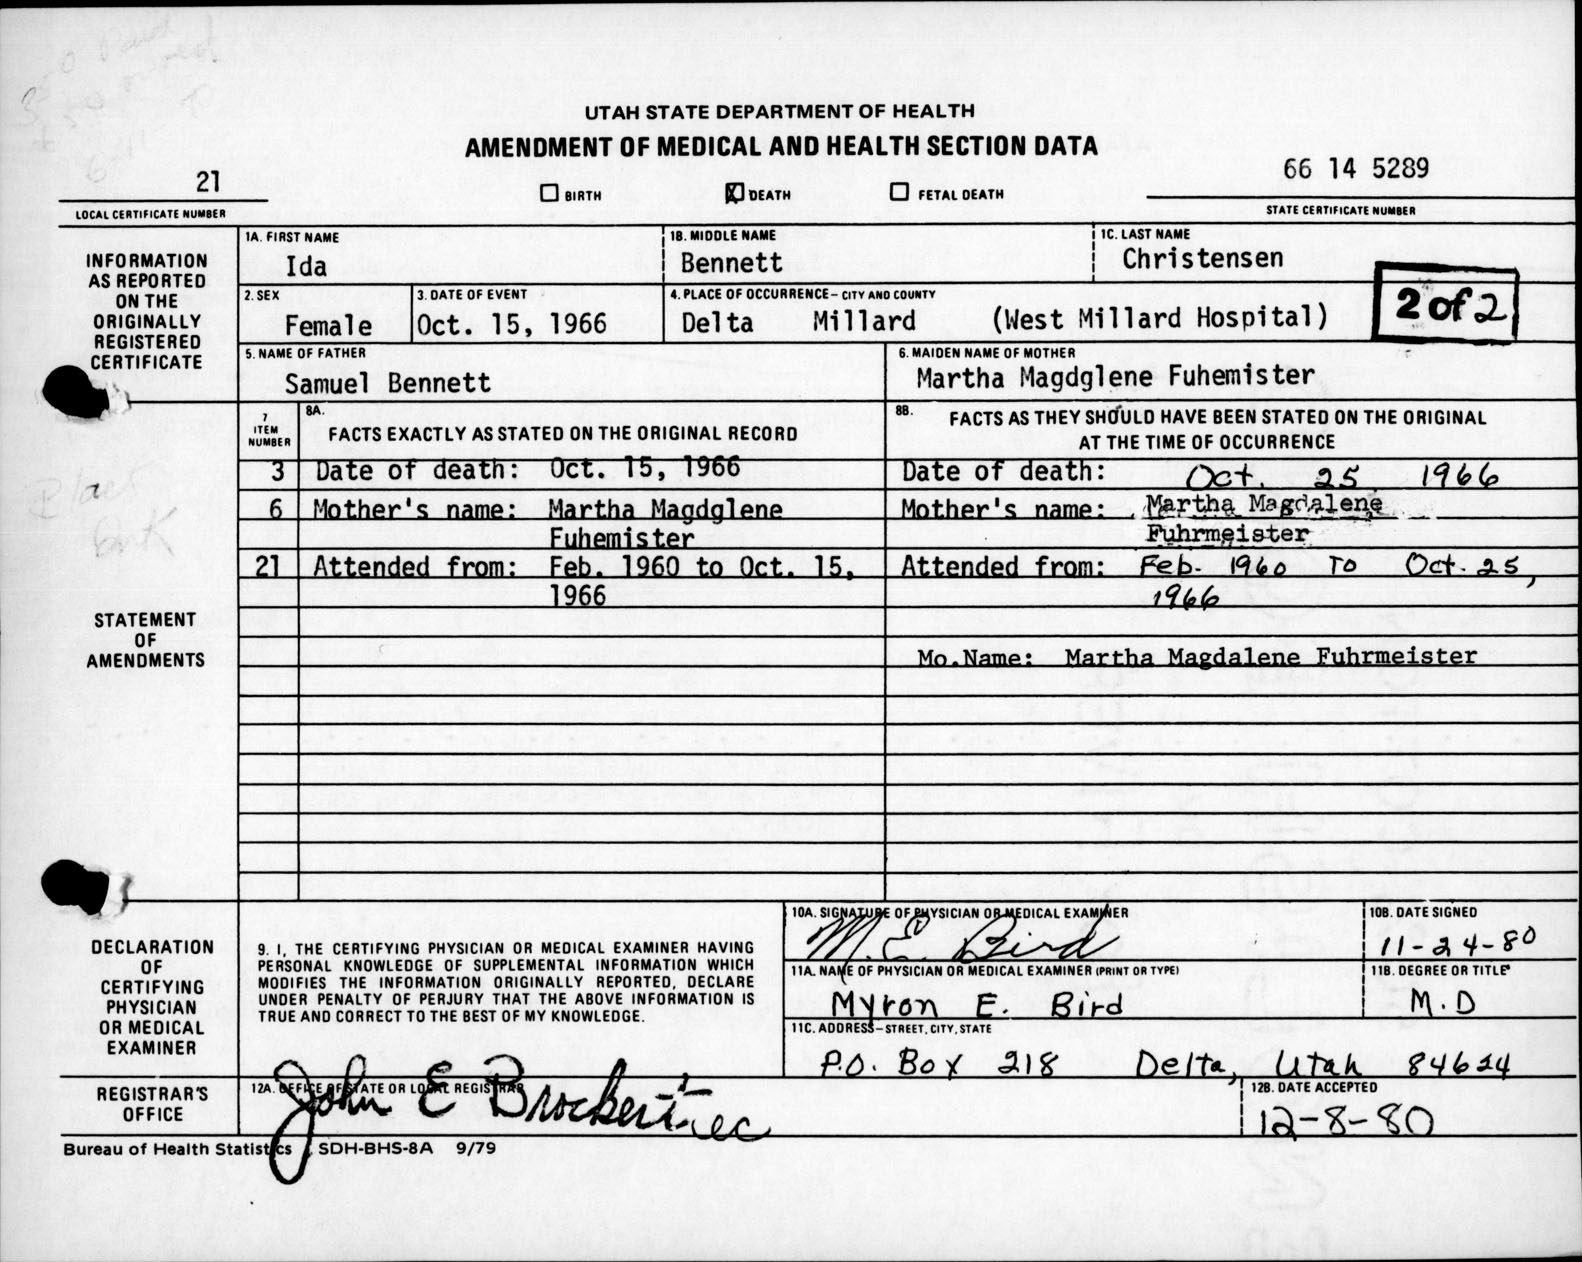 UTAH STATE DEPARTMENT OF HEALTH
AMENDMENT OF MEDICAL AND HEALTH SECTION DATA
21
66 14 5289
BIRTH X DEATH FETAL DEATH
LOCAL CERTIFICATE NUMBER
STATE CERTIFICATE NUMBER
INFORMATION
AS REPORTED
ON THE
ORIGINALLY
REGISTERED
CERTIFICATE
1A. FIRST NAME 1B. MIDDLE NAME 1C. LAST NAME
Ida Bennett Christensen
2. SEX 3. DATE OF EVENT 4. PLACE OF OCCURRENCE – CITY AND COUNTY
Female Oct. 15, 1966 Delta Millard (West Millard Hospital)
2 of 2
5. NAME OF FATHER 6. MAIDEN NAME OF MOTHER
Samuel Bennett Martha Magdglene Fuhemister
STATEMENT
OF
AMENDMENTS
7
ITEM
NUMBER
8A.
FACTS EXACTLY AS STATED ON THE ORIGINAL RECORD
8B. FACTS AS THEY SHOULD HAVE BEEN STATED ON THE ORIGINAL
AT THE TIME OF OCCURRENCE
3 Date of death: Oct. 15, 1966 Date of death: Oct. 25 1966
6 Mother's name: Martha Magdglene Mother's name: Martha Magdalene
Fuhemister Fuhrmeister
21 Attended from: Feb. 1960 to Oct. 15, Attended from: Feb. 1960 TO Oct. 25,
1966 1966
Mo.Name: Martha Magdalene Fuhrmeister
Black
Ink
DECLARATION
OF
CERTIFYING
PHYSICIAN
OR MEDICAL
EXAMINER
9. I, THE CERTIFYING PHYSICIAN OR MEDICAL EXAMINER HAVING
PERSONAL KNOWLEDGE OF SUPPLEMENTAL INFORMATION WHICH
MODIFIES THE INFORMATION ORIGINALLY REPORTED, DECLARE
UNDER PENALTY OF PERJURY THAT THE ABOVE INFORMATION IS
TRUE AND CORRECT TO THE BEST OF MY KNOWLEDGE.
10A. SIGNATURE OF PHYSICIAN OR MEDICAL EXAMINER 10B. DATE SIGNED
M. E. Bird 11-24-80
11A. NAME OF PHYSICIAN OR MEDICAL EXAMINER (PRINT OR TYPE) 11B. DEGREE OR TITLE
Myron E. Bird M.D
11C. ADDRESS – STREET, CITY, STATE
P.O. Box 218 Delta, Utah 84624
REGISTRAR'S
OFFICE
12A. OFFICE OF STATE OR LOCAL REGISTRAR 12B. DATE ACCEPTED
John E Brockert ec 12-8-80
Bureau of Health Statistics SDH-BHS-8A 9/79